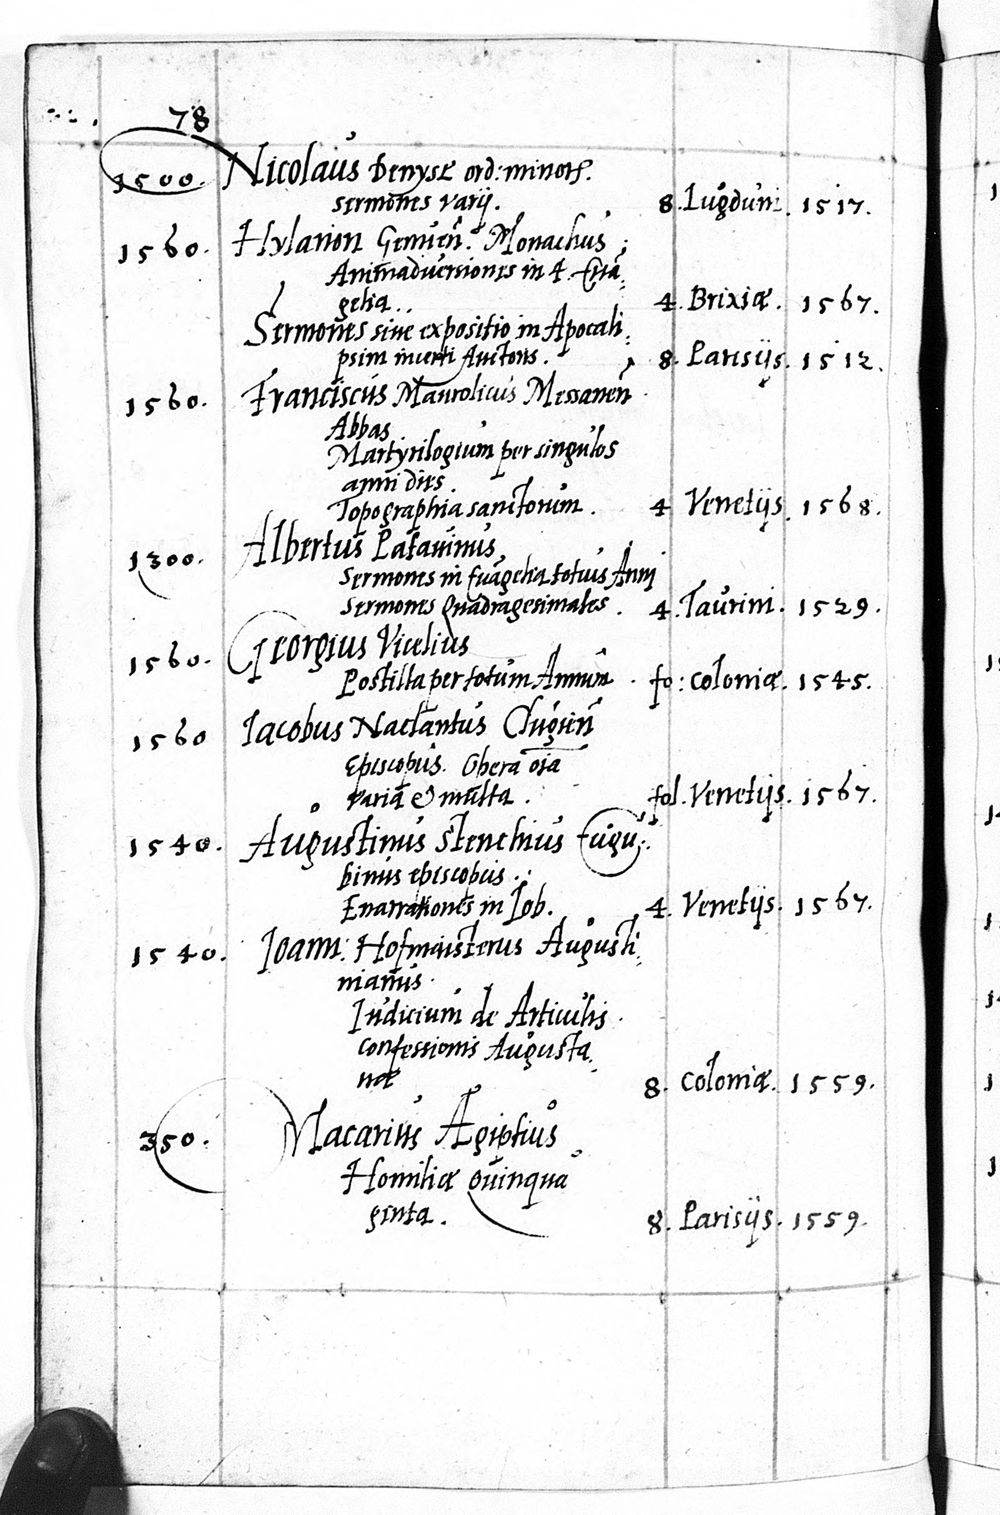 78
1500. Nicolaus Denyse ord: minor.
sermones varij. 8. Lugduni. 1517.
1560. Hylarion Genuen. Monachus
Animadversiones in 4. Euã
gelia.. 4. Brixiæ. 1567.
Sermones sive expositio in Apocali
psim incerti Auctoris. 8. Parisijs. 1512.
1560. Franciscus Maurolicus Messanen
Abbas
Martyrilogium per singulos
anni dies.
Topographia sanctorum. 4 Venetijs. 1568.
1300. Albertus Patavinus
Sermones in Euãgelia totius Anni
Sermones Quadragesimales. 4. Taurini. 1529.
1560. Georgius Vicelius
Postilla per totum Annum. fo: coloniæ. 1545.
1560 Iacobus Naclantus Clugien
Episcopus. Opera oĩa
varia & multa. fol. Venetijs. 1567.
1540. Augustinus Steuchius Eugu
binus episcopus.
Enarrationes in Iob. 4. Venetijs. 1567.
1540. Ioann: Hofmaisterus Augusti
nianus.
Iudicium de Articulis
confessionis Augusta
næ 8. coloniæ. 1559.
350. Macarius Ægiptius
Homiliæ quinqua
ginta. 8. Parisijs. 1559.